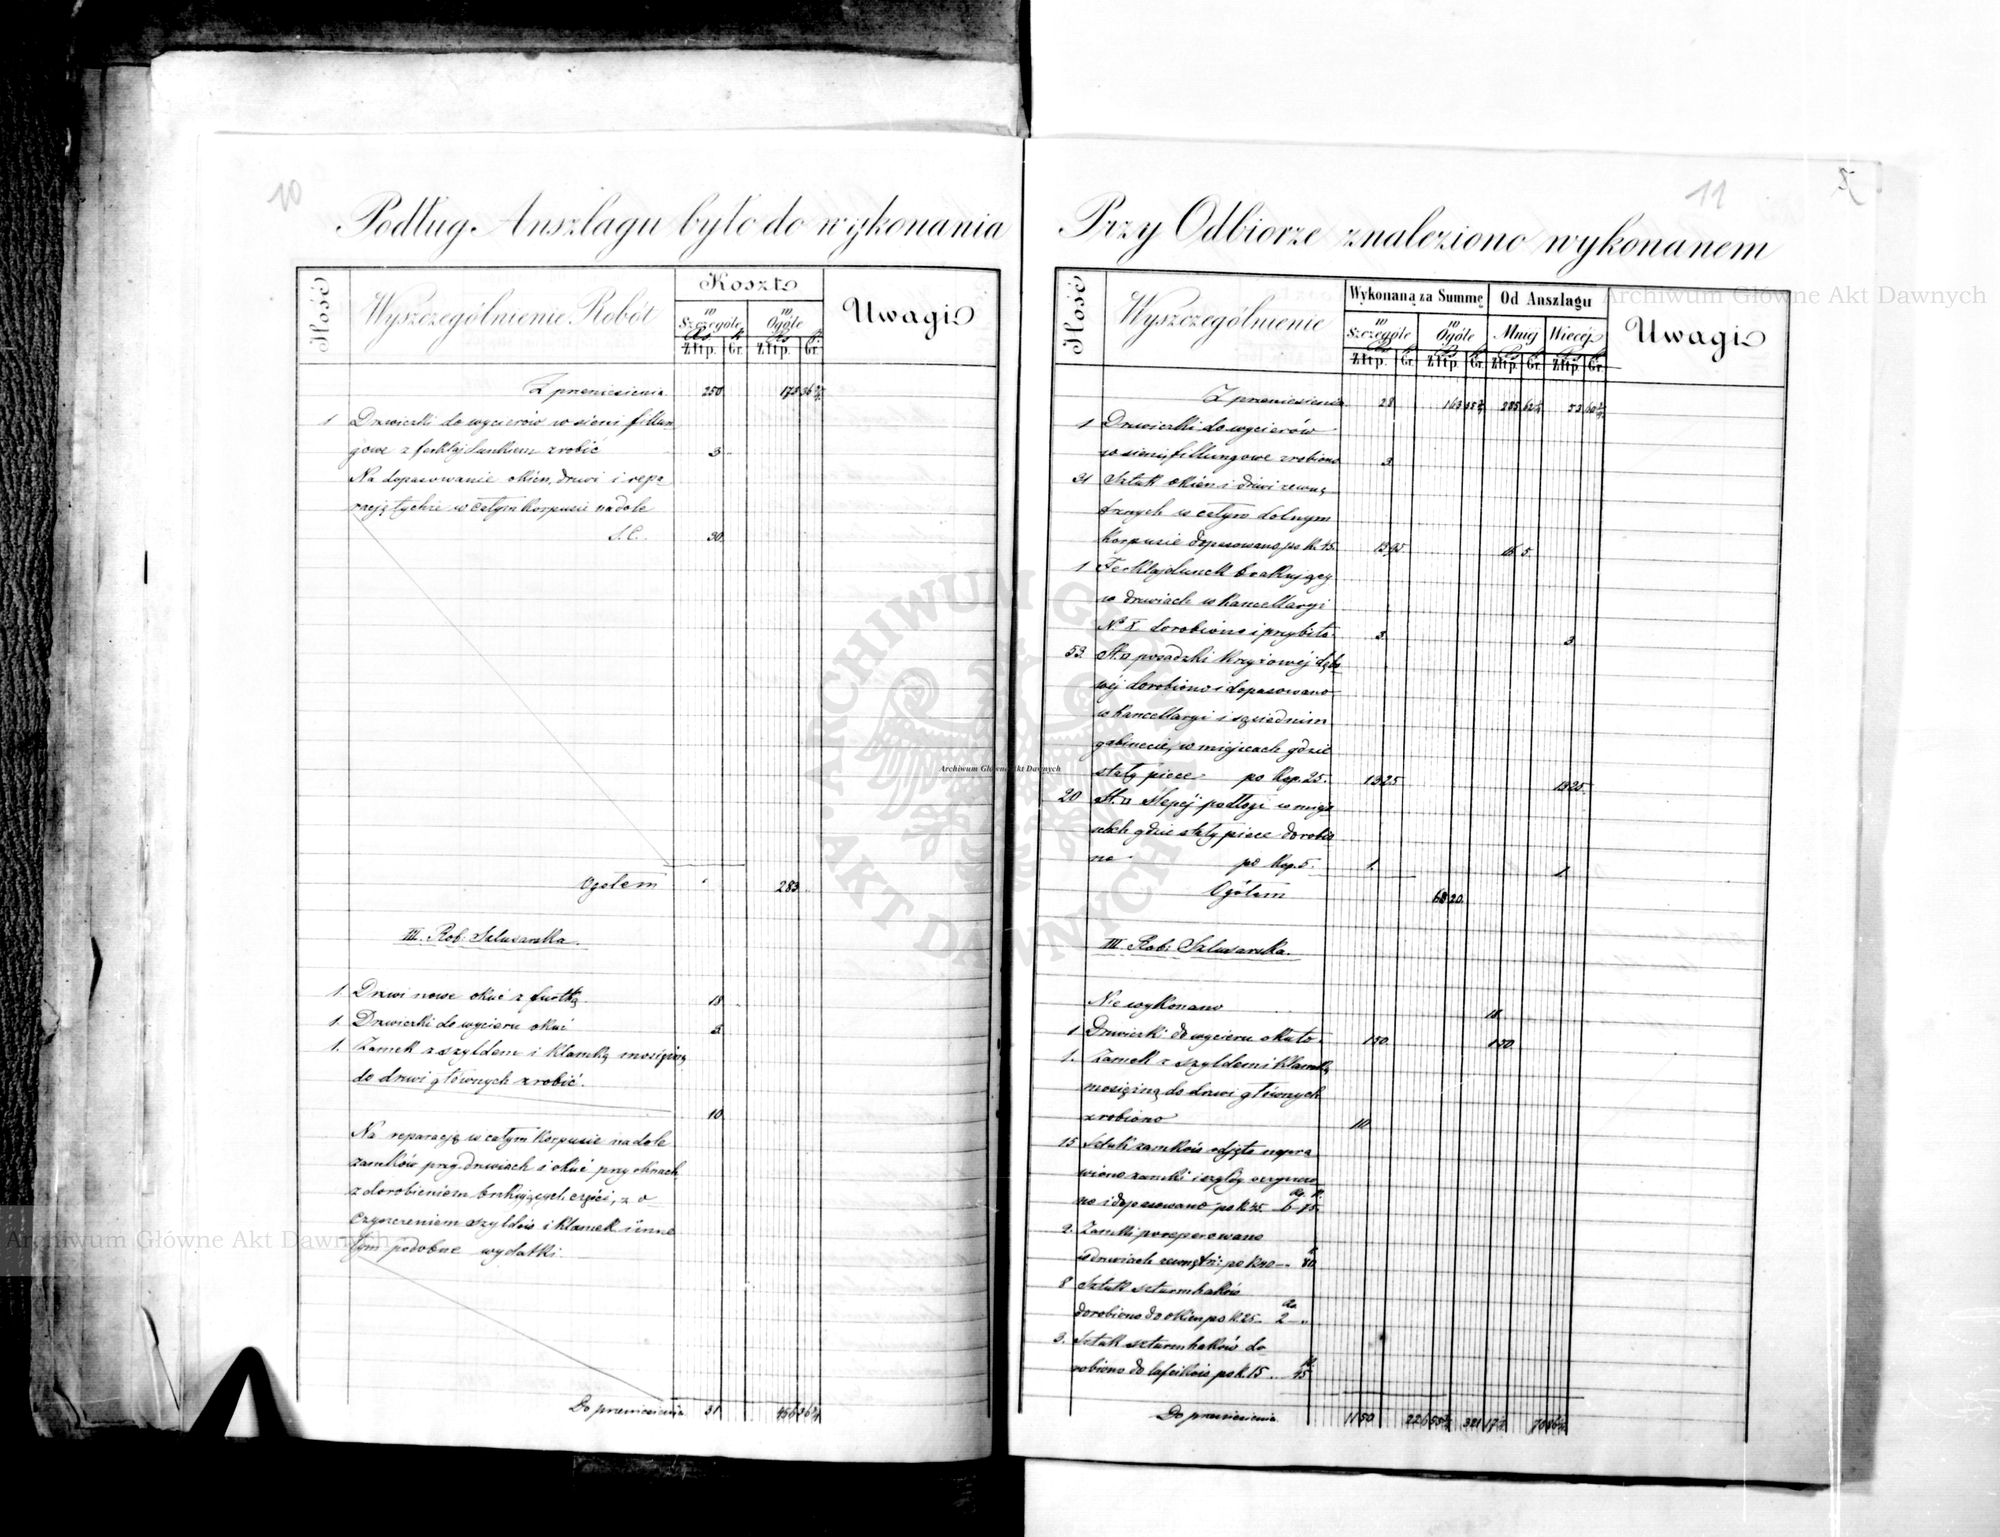 10
Podług Anszlagu było do wykonania
Ilość
Wyszczególnienie Robót
Koszta
w Szczególe
w Ogóle
Uwagi
Złtp. Gr. Złtp. Gr.
Z przeniesienia 250
1 Drzwiczki do wycierów w sieni fillun-
gowe z ferklajdunkiem zrobić 3
Na dopasowanie okien, drzwi i repa-
racją tychże w całym korpusie na dole
30
Ogółem 283
III. Rob: Szlusarska.
1. Drzwi nowe okuć z furtką 18
1. Drzwiczki do wycieru okuć 3
1. Zamek z szyldem i klamką mosiężną
do drzwi głównych zrobić.
10
Na reparacją w całym korpusie na dole
zamków przy drzwiach i okuć przy oknach
z dorobieniem brakujących części, z o-
czyszczeniem szyldów i klamek i inne
tym podobne wydatki
Do przeniesienia 31
11
Przy Odbiorze znaleziono wykonanem
Ilość
Wyszczególnienie
Wykonana za Summę
Od Anszlagu
w Szczególe
w Ogóle
Mniej
Więcej
Uwagi
Złtp. Gr. Złtp. Gr. Złtp. Gr. Złtp. Gr.
Z przeniesienia 28
1 Drzwiczki do wycierów
w sieni fillungowe zrobiono 3
31 Sztuk okien i drzwi zewnę-
trznych w całym dolnym
korpusie dopasowano po k. 45. 13 95 16 5
1 Ferklajdunek brakujący
w drzwiach w kancellaryi
No X dorobiono i przybito 3 3
53. St. □ posadzki krzyżowej dębo-
wéj dorobiono i dopasowano
w kancellaryi i sąsiednim
gabinecie, w miejscach gdzie
stały piece po kop. 25. 13 25 13 25
20 St. □ ślepej podłogi w miej-
scach gdzie stały piece dorobio-
no po kop. 5. 1. 1
Ogółem 68 20
III Rob: Szlusarska.
Nie wykonano 18
1 Drzwiczki do wycieru okuto. 1 50 1 50
1. Zamek z szyldem i klamką
mosiężną do drzwi głównych
zrobiono 10
15 Sztuk zamków odjęto napra-
wiono zamki i szyldy
no i dopasowano po k. 45. 6 75.
2. Zamki poreperowano
w drzwiach zewnętr: po k. 40 80
8 Sztuk szturmhaków
dorobiono do okien po k. 25. 2
3. Sztuk szturmhaków do-
robiono do lufcików po k. 15 45
Do przeniesienia 11 50
Archiwum Główne Akt Dawnych
Archiwum Główne Akt Dawnych
Archiwum Główne Akt Dawnych
ARCHIWUM GŁÓWNE AKT DAWNYCH